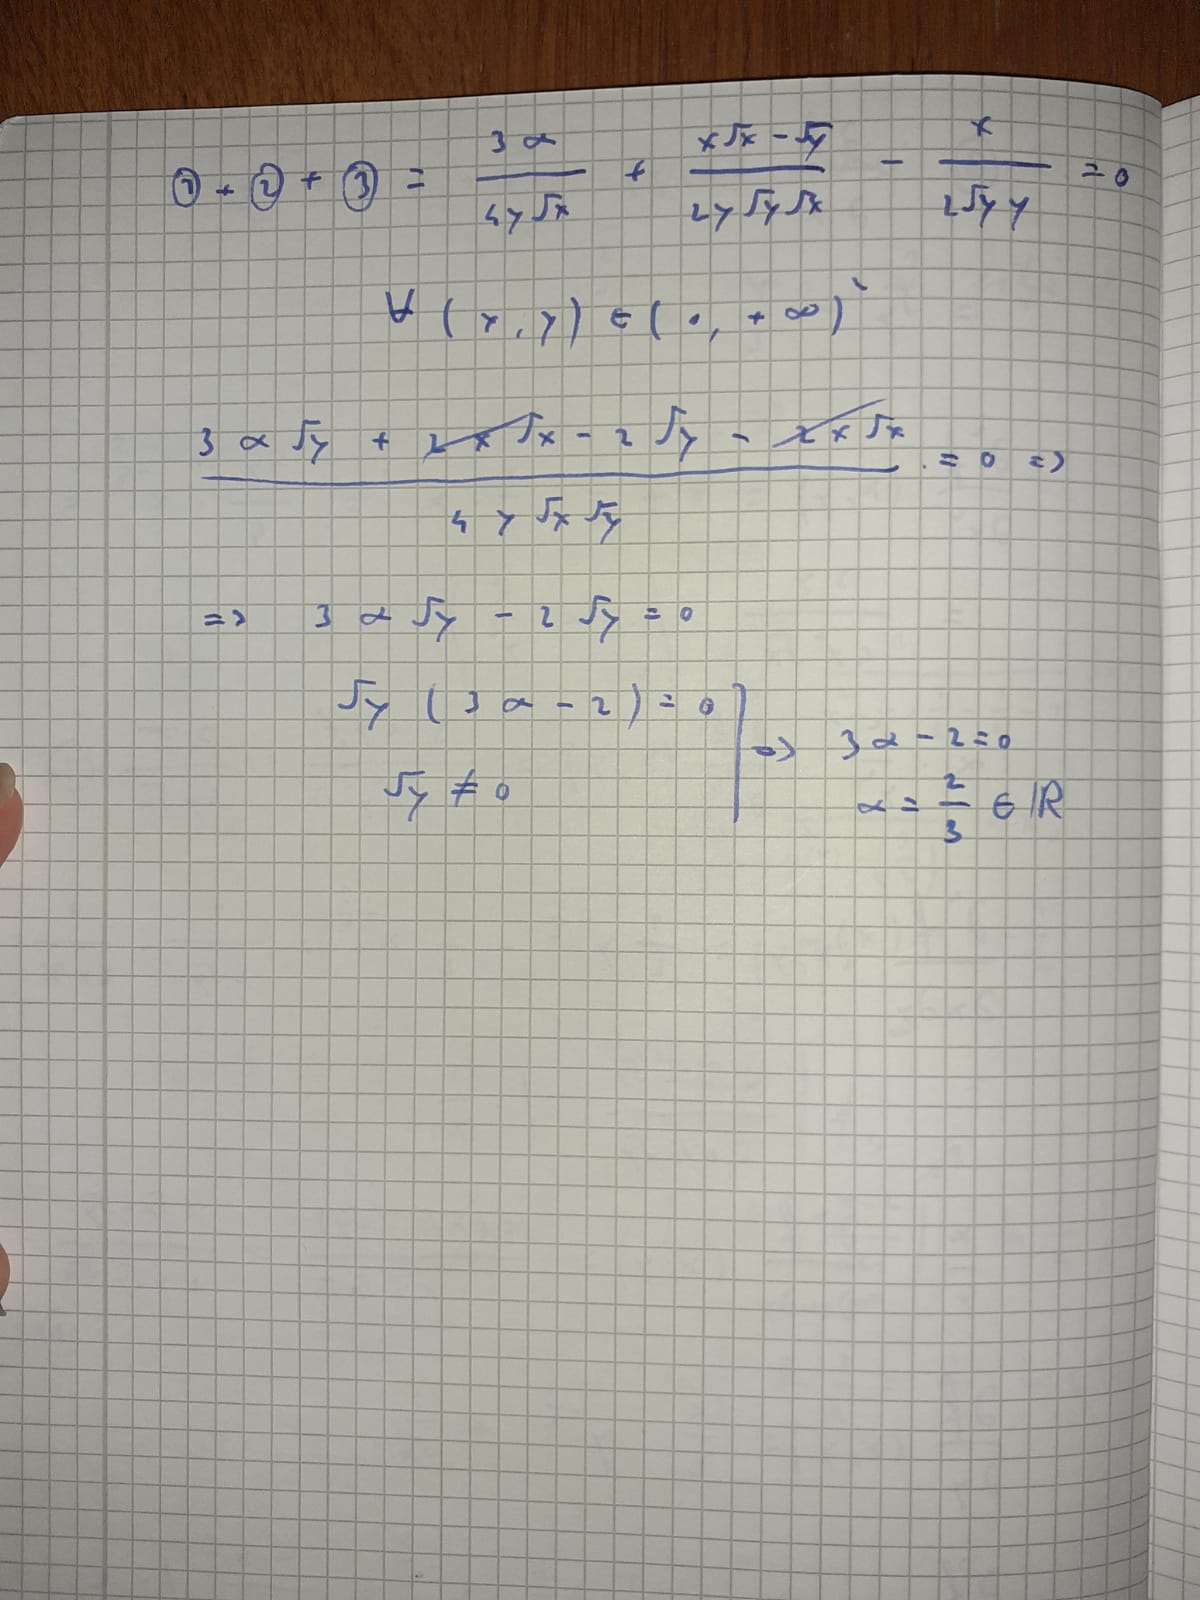 ① + ② + ③ = 3α / 4y√x + x√x - √y / 2y√y√x - x / 2√y y = 0
∀ (x, y) ∈ (0, +∞)²
3α√y + 2x√x - 2√y - 2x√x / 4y√x√y = 0 =>
=> 3α√y - 2√y = 0
√y (3α - 2) = 0
√y ≠ 0
=> 3α - 2 = 0
α = 2/3 ∈ ℝ